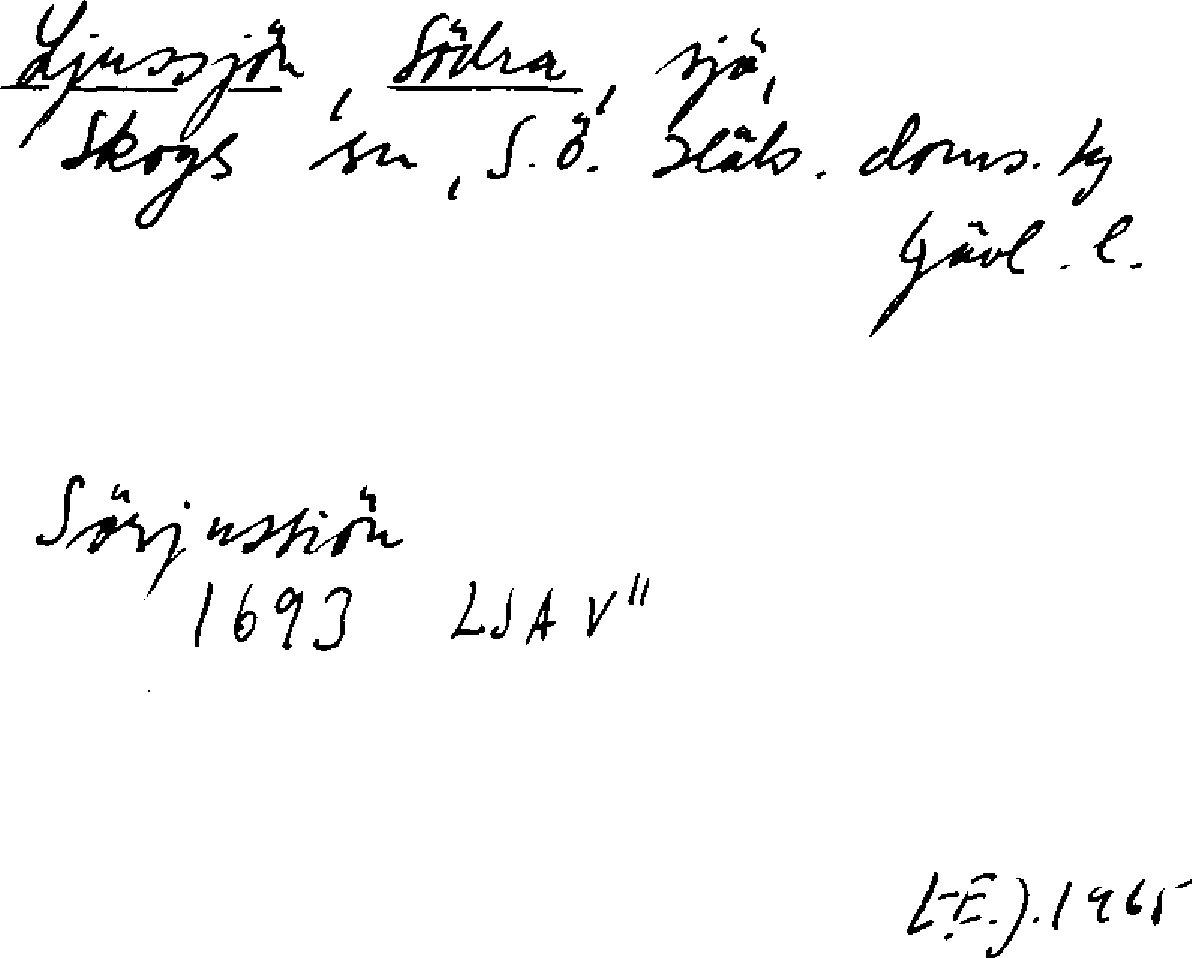 Ljussjön, Södra, sjö,
Skogs sn, S.Ö. Häls. doms. tg
Gävl. l.
Sörjussiön
1693 LSA V"
L.E.J. 1965